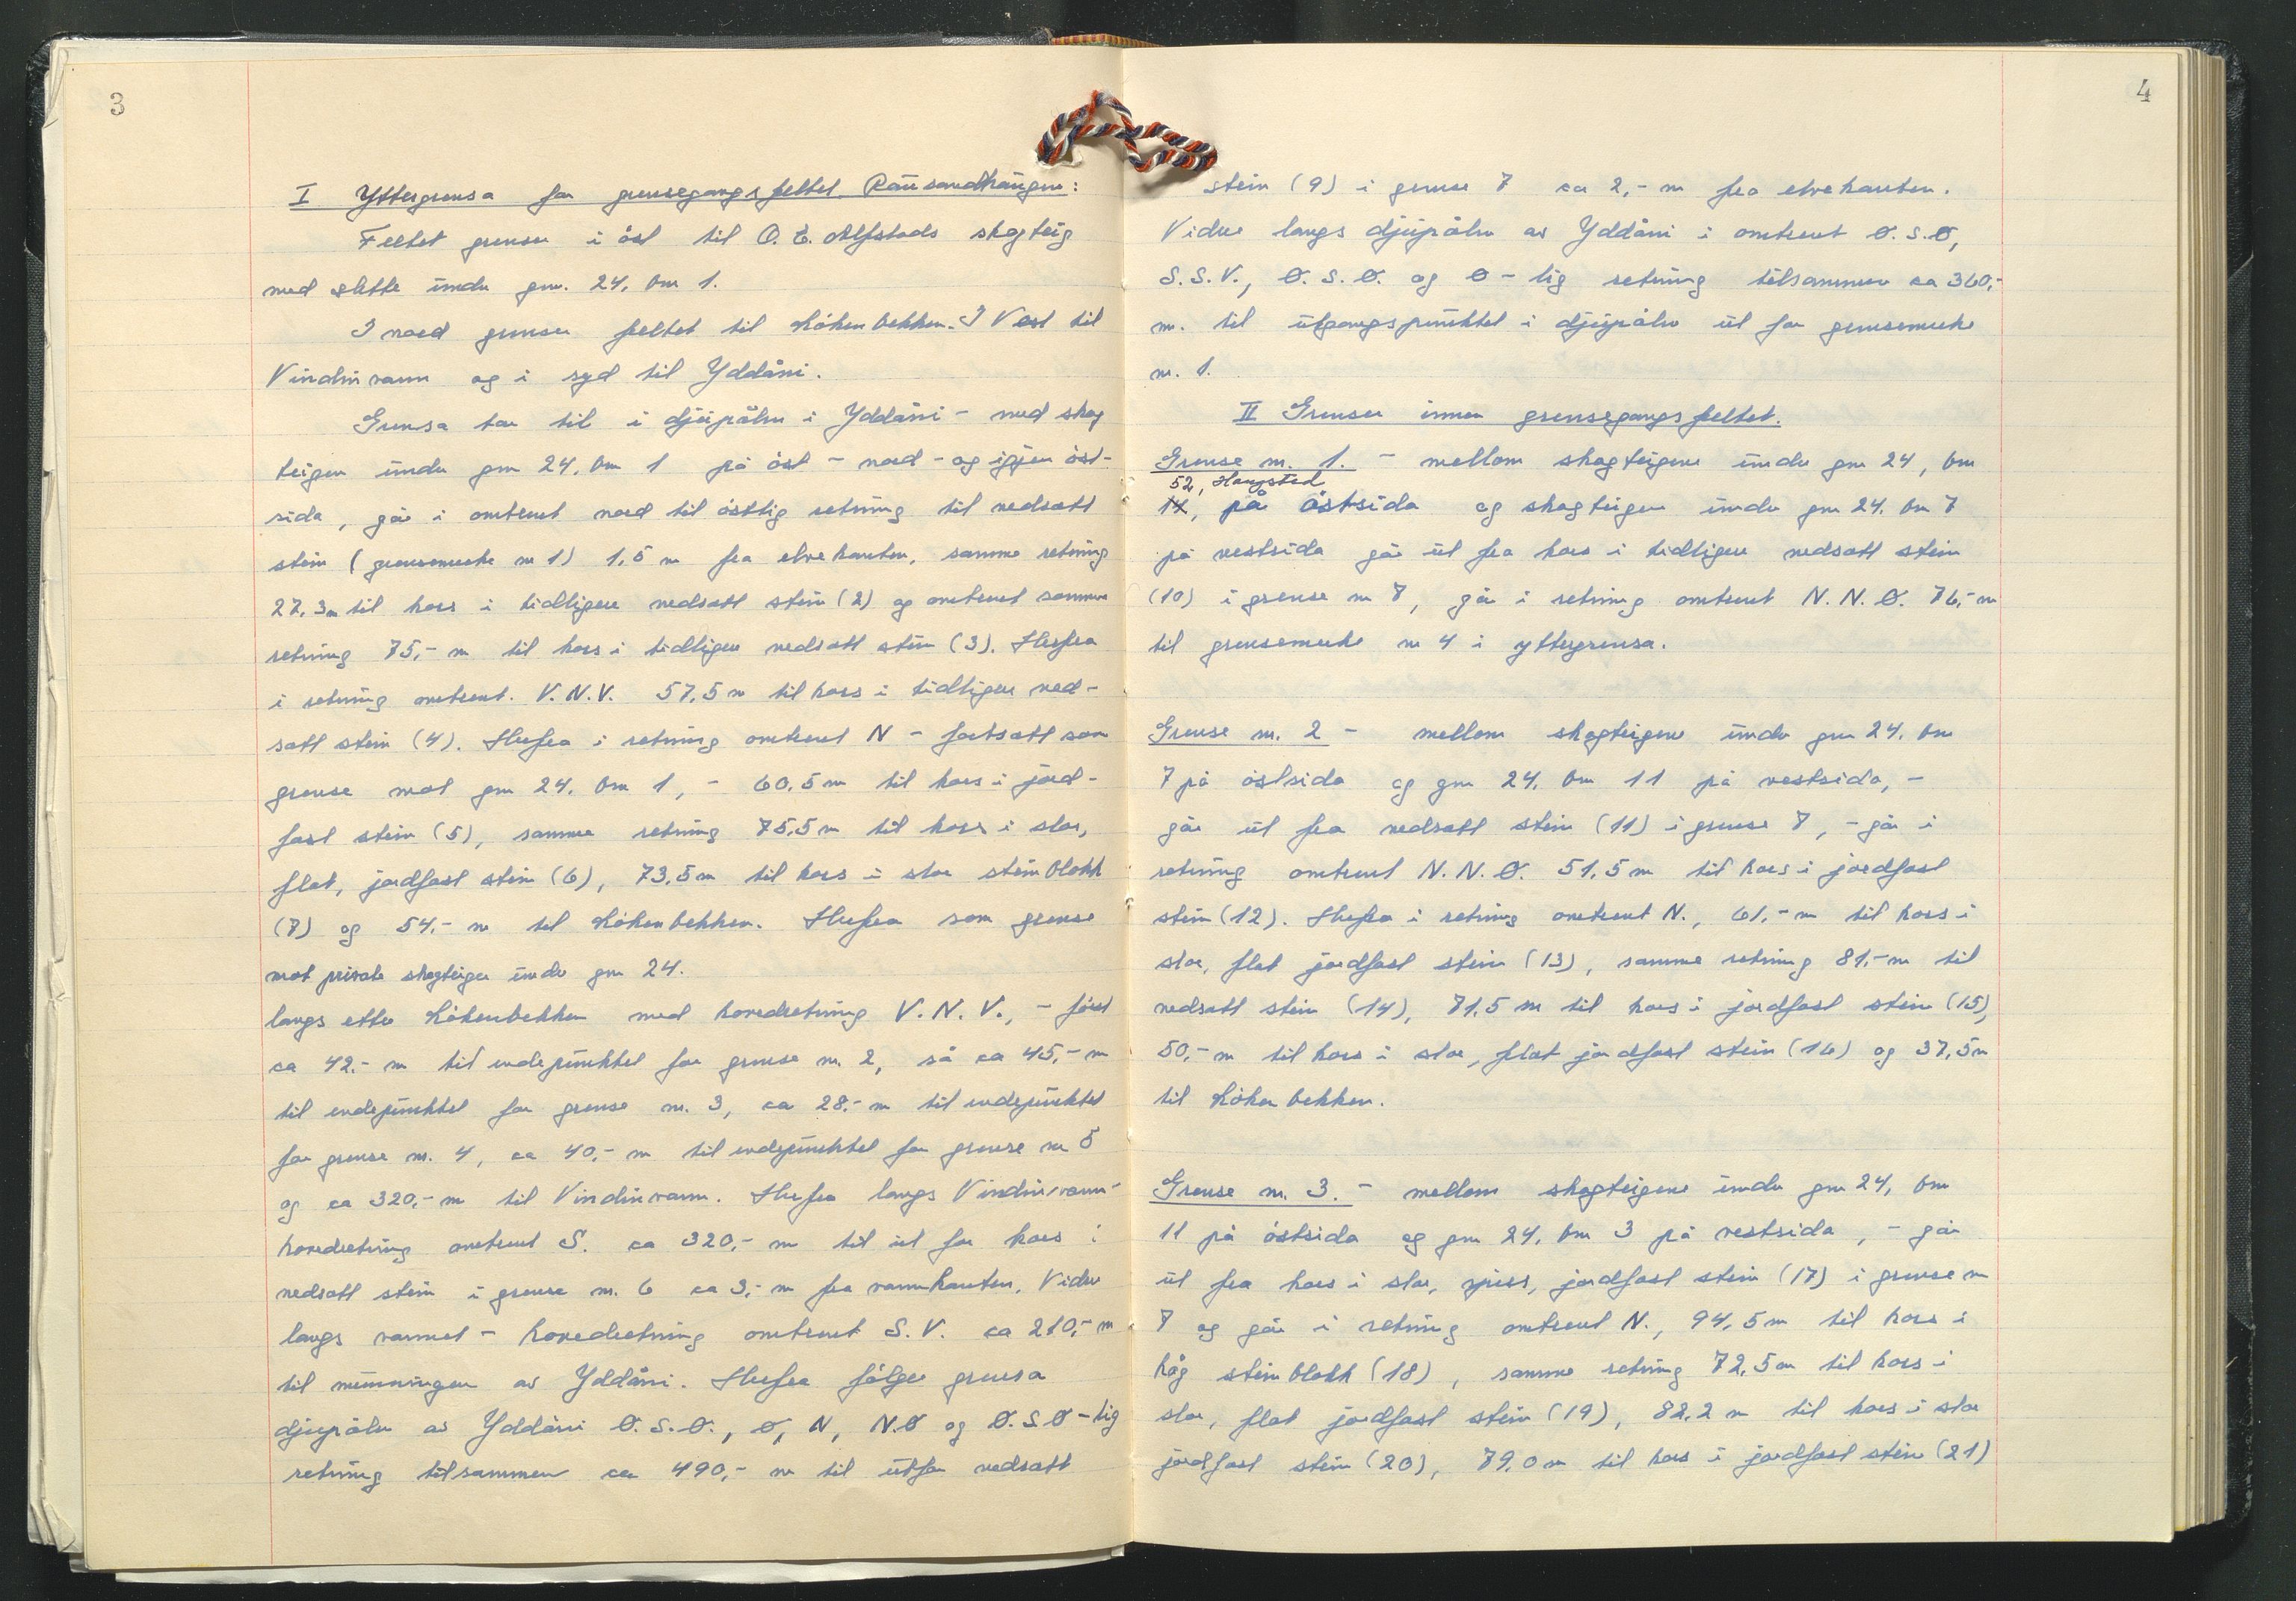 3
I Yttergrensa for grensegangsfeltet Rausandhaugene:
Feltet grenser i øst til O. E. Alfstads skogteig
med slitte under gnr. 24, bnr 1.
I nord grenser feltet til Kokenbekken. I Vest til
Vindinvann og i syd til Yddåni.
Grensa tar til i djupålen i Yddåni - med skog
teigen under gnr 24, bnr 1 på øst - nord - og igjen øst-
sida, går i omtrent nord til østlig retning til nedsatt
stein (grensemerke nr 1) 1,5 m fra elvekanten, samme retning
27,3 m til kors i tidligere nedsatt stein (2) og omtrent samme
retning 75,- m til kors i tidligere nedsatt stein (3). Herfra
i retning omtrent. V.N.V. 57,5 m til kors i tidligere ned-
satt stein (4). Herfra i retning omtrent N - fortsatt som
grense mot gnr 24, bnr 1, - 60,5 m til kors i jord-
fast stein (5), samme retning 75,5 m til kors i stor,
flat, jordfast stein (6), 73,5 m til kors i stor steinblokk
(7) og 54,- m til Kokenbekken. Herfra som grense
mot private skogteiger under gnr 24.
langs etter Kokenbekken med hovedretning V.N.V., - først
ca 42,- m til endepunktet for grense nr. 2, så ca 45,- m
til endepunktet for grense nr. 3, ca 28,- m til endepunktet
for grense nr. 4, ca 40,- m til endepunktet for grense nr 5
og ca 320,- m til Vindinvann. Herfra langs Vindinvann -
hovedretning omtrent S. ca 320,- m til ut for kors i
nedsatt stein i grense nr. 6 ca 3,- m fra vannkanten. Videre
langs vannet - hovedretning omtrent S.V. ca 210,- m
til munningen av Yddåni. Herfra følger grensa
djupålen av Yddåni Ø.S.Ø., Ø, N, N.Ø og Ø.S.Ø - lig
retning tilsammen ca 490,- m til utfor nedsatt
4
stein (9) i grense 7 ca 2,- m fra elvekanten.
Videre langs djupålen av Yddåni i omtrent Ø.S.Ø,
S.S.V., Ø.S.Ø. og Ø - lig retning tilsammen ca 360,-
m. til utgangspunktet i djupålen ut for grensemerke
nr. 1.
II Grenser innen grensegangsfeltet.
Grense nr. 1. - mellom skogteigene under gnr 24, bnr
52, Haugstad
14, på østsida og skogteigen under gnr 24, bnr 7
på vestsida går ut fra kors i tidligere nedsatt stein
(10) i grense nr 7, går i retning omtrent N.N.Ø. 76,- m
til grensemerke nr 4 i yttergrensa.
Grense nr. 2 - mellom skogteigene under gnr 24, bnr
7 på østsida og gnr 24, bnr 11 på vestsida, -
går ut fra nedsatt stein (11) i grense 7, - går i
retning omtrent N.N.Ø. 51,5 m til kors i jordfast
stein (12). Herfra i retning omtrent N., 61,- m til kors i
stor, flat jordfast stein (13), samme retning 81,- m til
nedsatt stein (14), 71,5 m til kors i jordfast stein (15),
50,- m til kors i stor, flat jordfast stein (16) og 37,5 m
til Kokenbekken.
Grense nr. 3. - mellom skogteigene under gnr 24, bnr
11 på østsida og gnr 24, bnr 3 på vestsida, - går
ut fra kors i stor, spiss, jordfast stein (17) i grense nr
7 og går i retning omtrent N., 94,5 m til kors i
høg steinblokk (18), samme retning 72,5 m til kors i
stor, flat jordfast stein (19), 82,2 m til kors i stor
jordfast stein (20), 79,0 m til kors i jordfast stein (21)